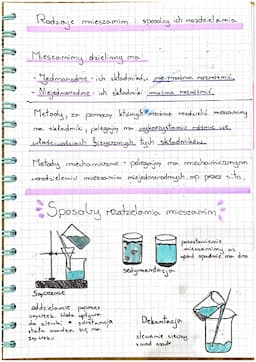 Rodzaje mieszanin i sposoby ich rozdzielania
Mieszaniny dzielimy na:
- Jednorodne - ich składników nie można rozróżnić
- Niejednorodne - ich składniki można rozróżnić
Metody, za pomocą których można rozdzielić mieszaniny
na składniki, polegają na wykorzystaniu różnic we
właściwościach fizycznych tych składników.
Metody mechaniczne - polegają na mechanicznym
rozdzieleniu mieszanin niejednorodnych, np. przez sito.
Sposoby rozdzielania mieszanin
pozostawienie
mieszaniny aż
opad opadnie na dno
sedymentacja
Sączenie
oddzielanie poprzez
sączek
Dekantacja
zlewanie cieczy
znad osadu